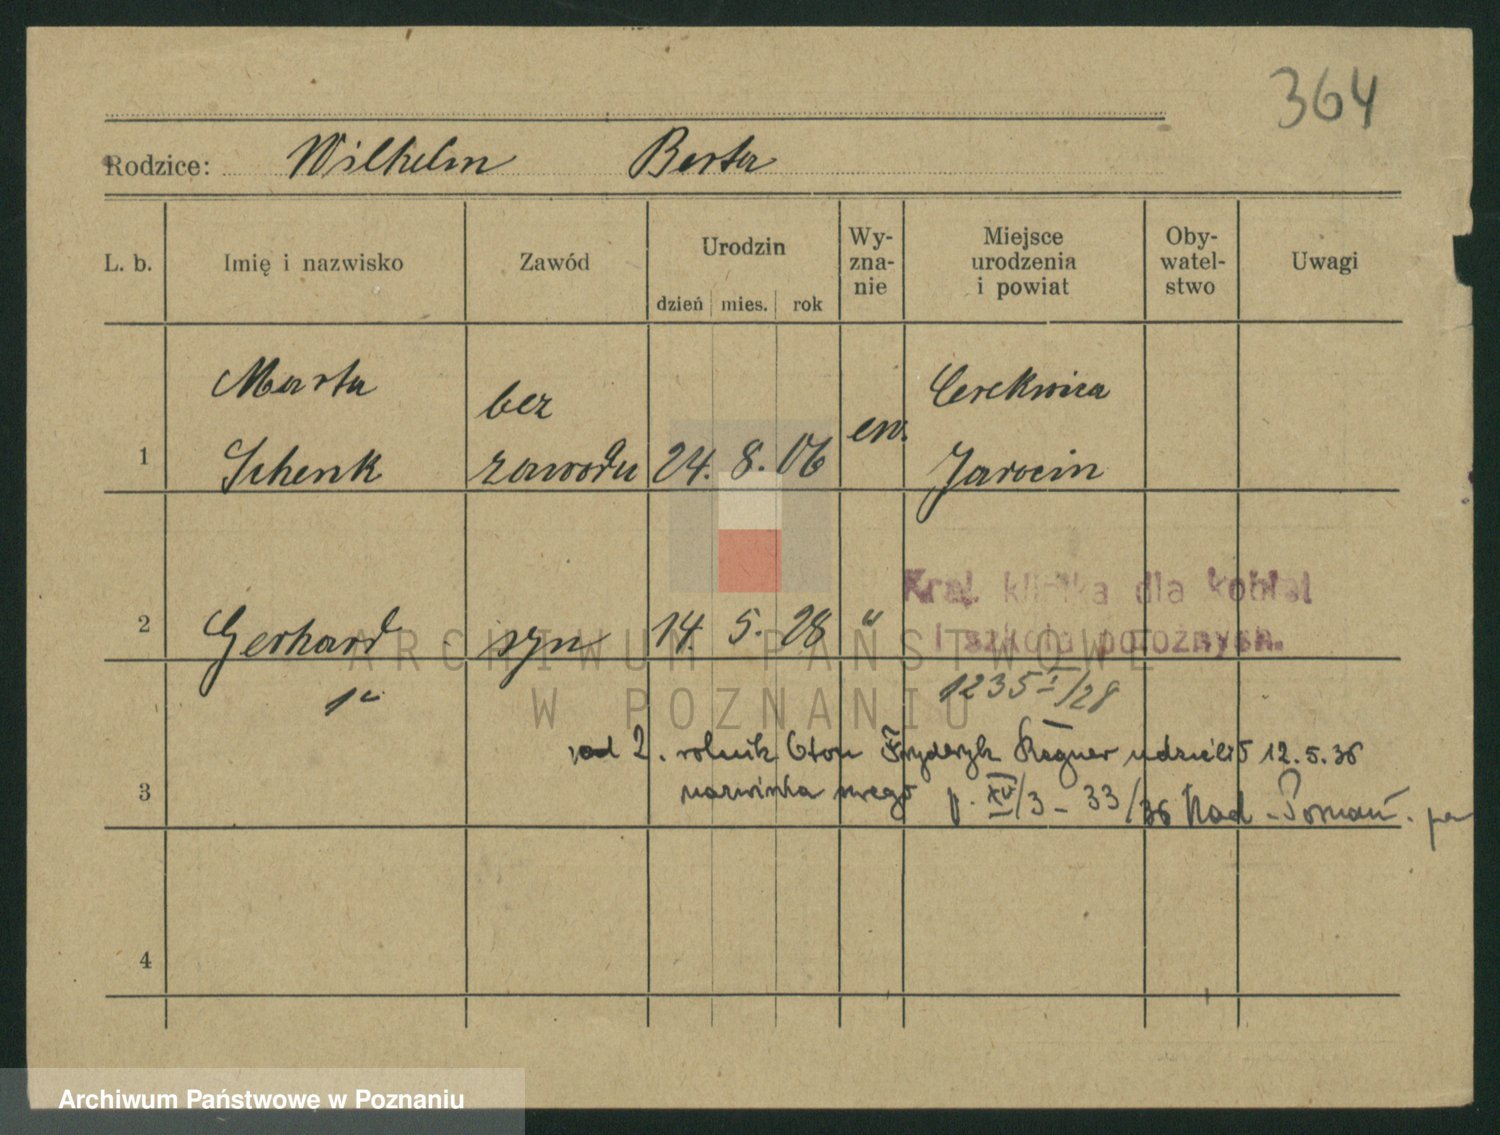 364
Rodzice: Wilhelm Berta
L. b. Imię i nazwisko Zawód Urodzin dzień mies. rok Wy-zna-nie Miejsce urodzenia i powiat Oby-watel-stwo Uwagi
1 Marta Schenk bez zawodu 24. 8. 06 ew. Cerekwica Jarocin
2 Gerhard syn 14. 5. 28 " Kraj. klinika dla kobiet
i szkoła położnych.
1235 I/28
ad 2. rolnik Oton Fryderyk Regner udzielił 12.5.36
3 nazwiska swego p. XV/3 - 33/36 Nad - Poznań.
4
ARCHIWUM PAŃSTWOWE
W POZNANIU
Archiwum Państwowe w Poznaniu